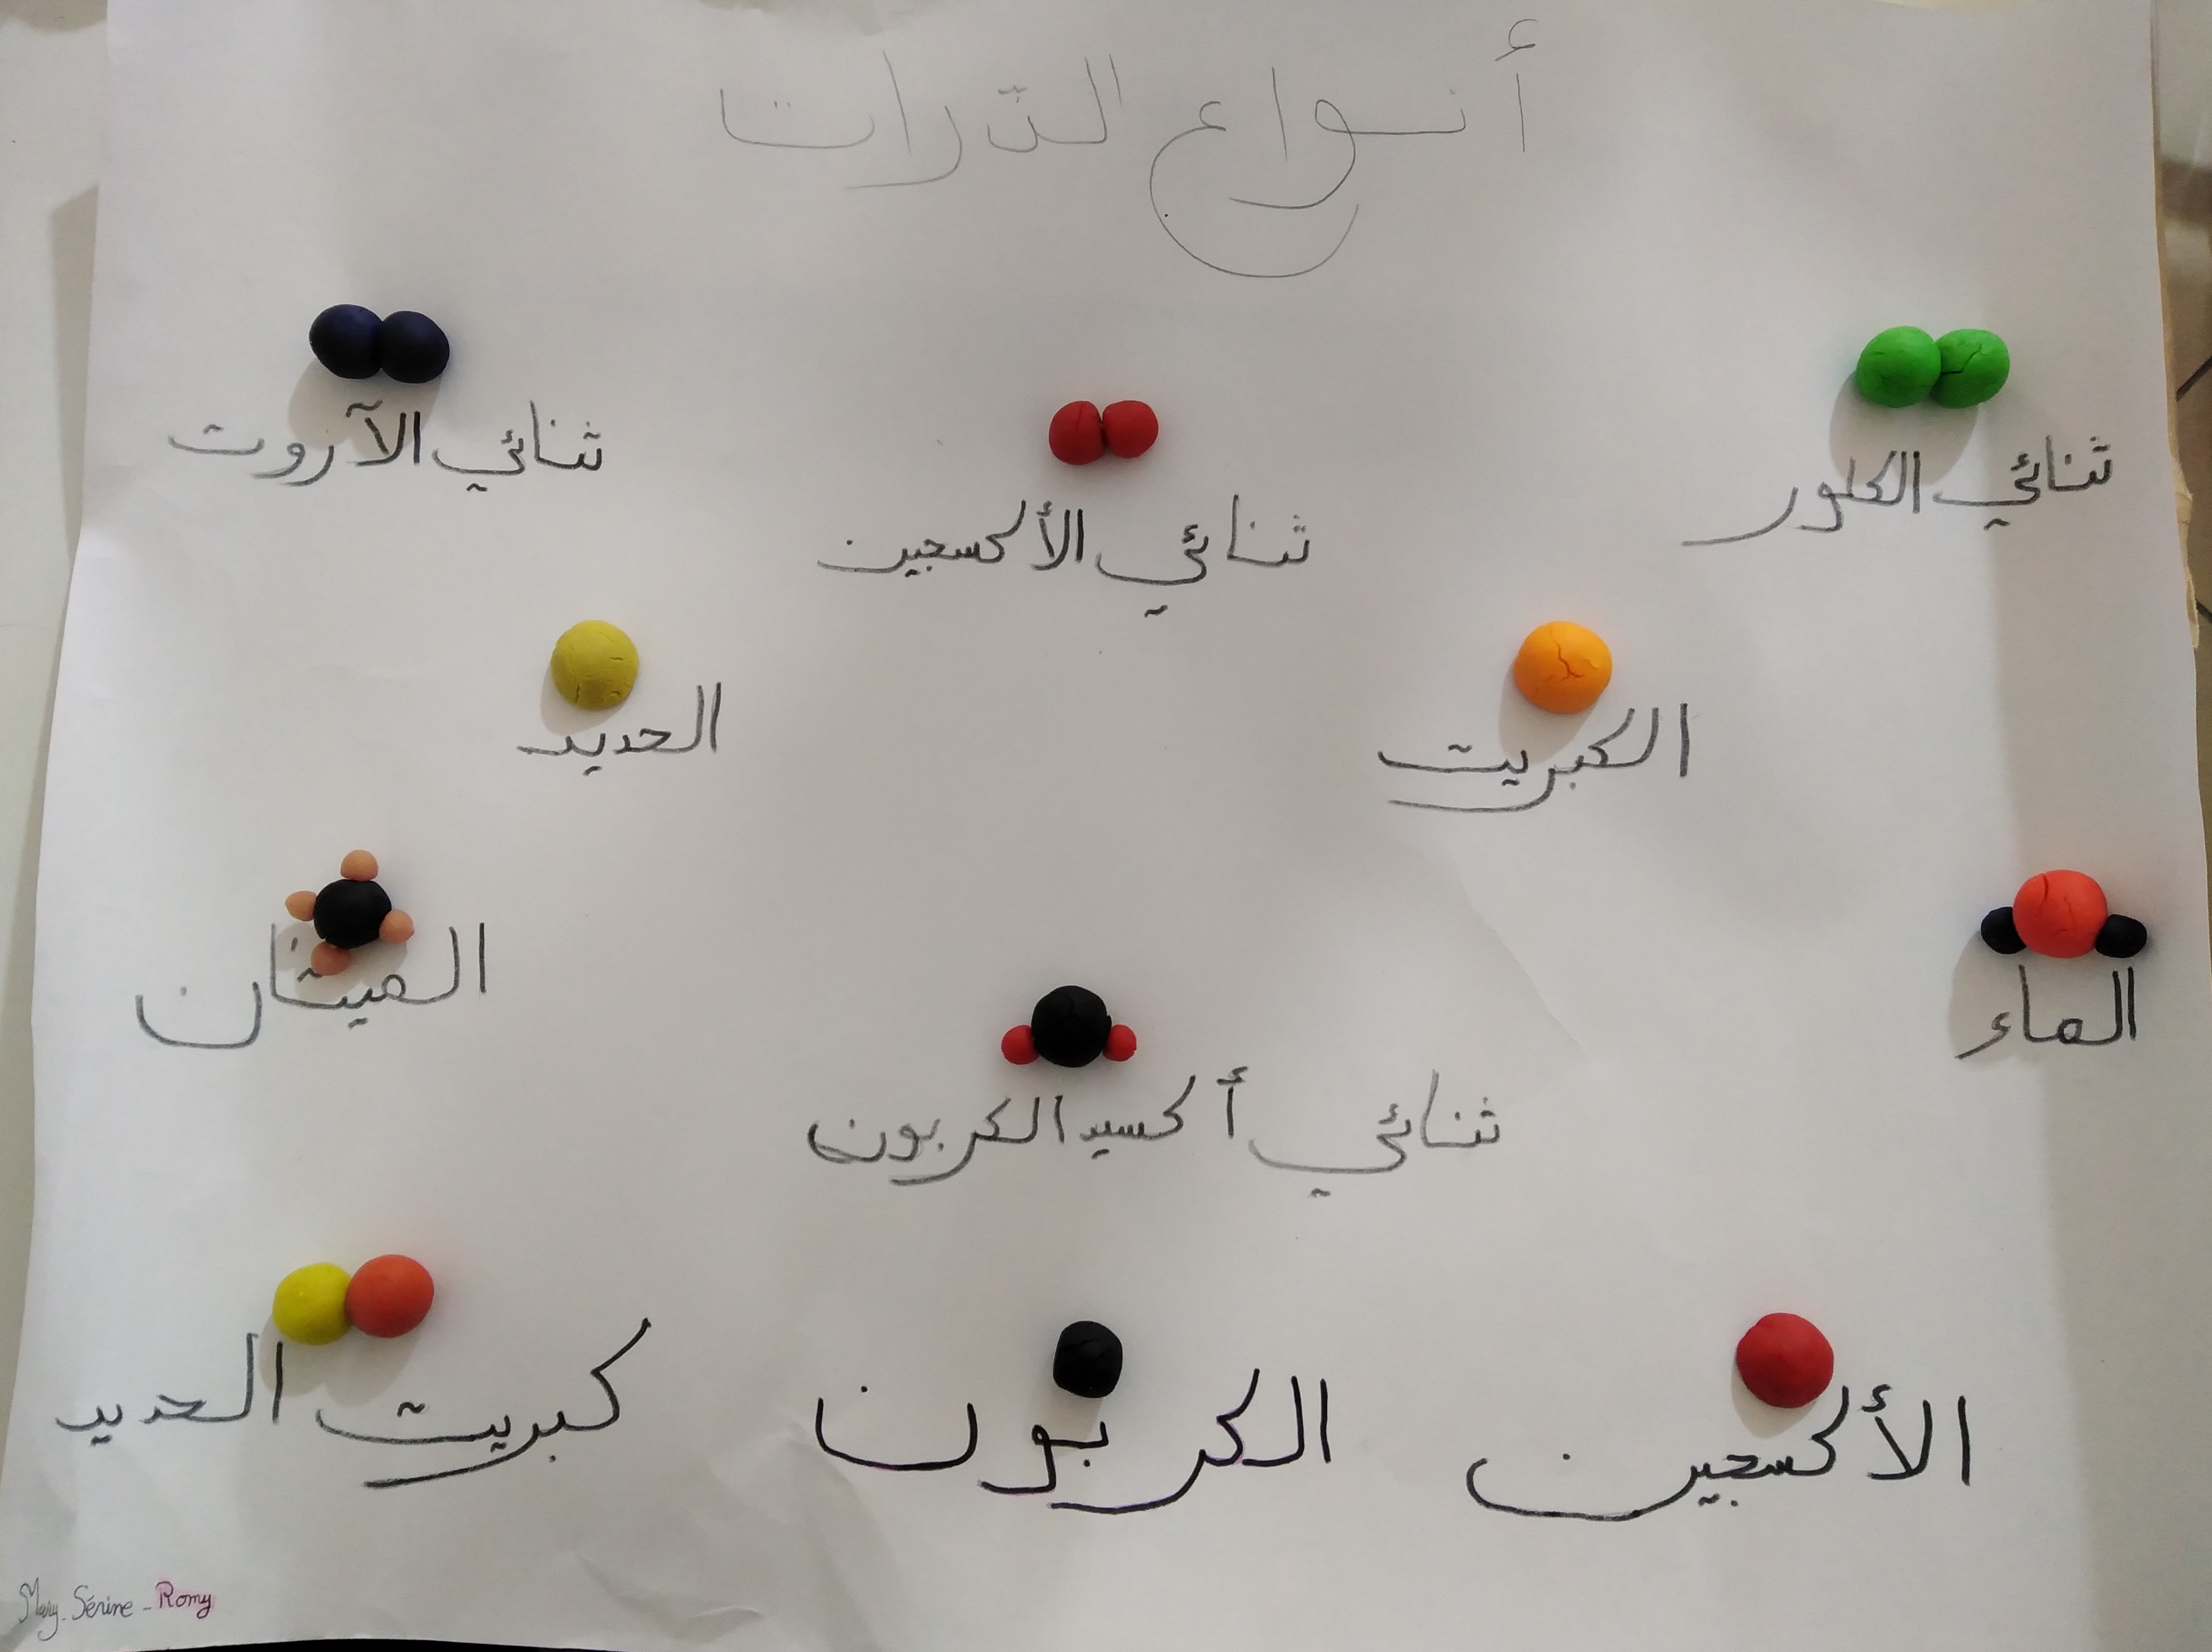 أنواع الدّرات
ثنائي الكلور
ثنائي الأكسجين
ثنائي الآروت
الكبريت
الحديد
الماء
ثنائي أكسيد الكربون
الميثان
الأكسجين
الكربون
كبريت الحديد
Mary - Sérine - Romy